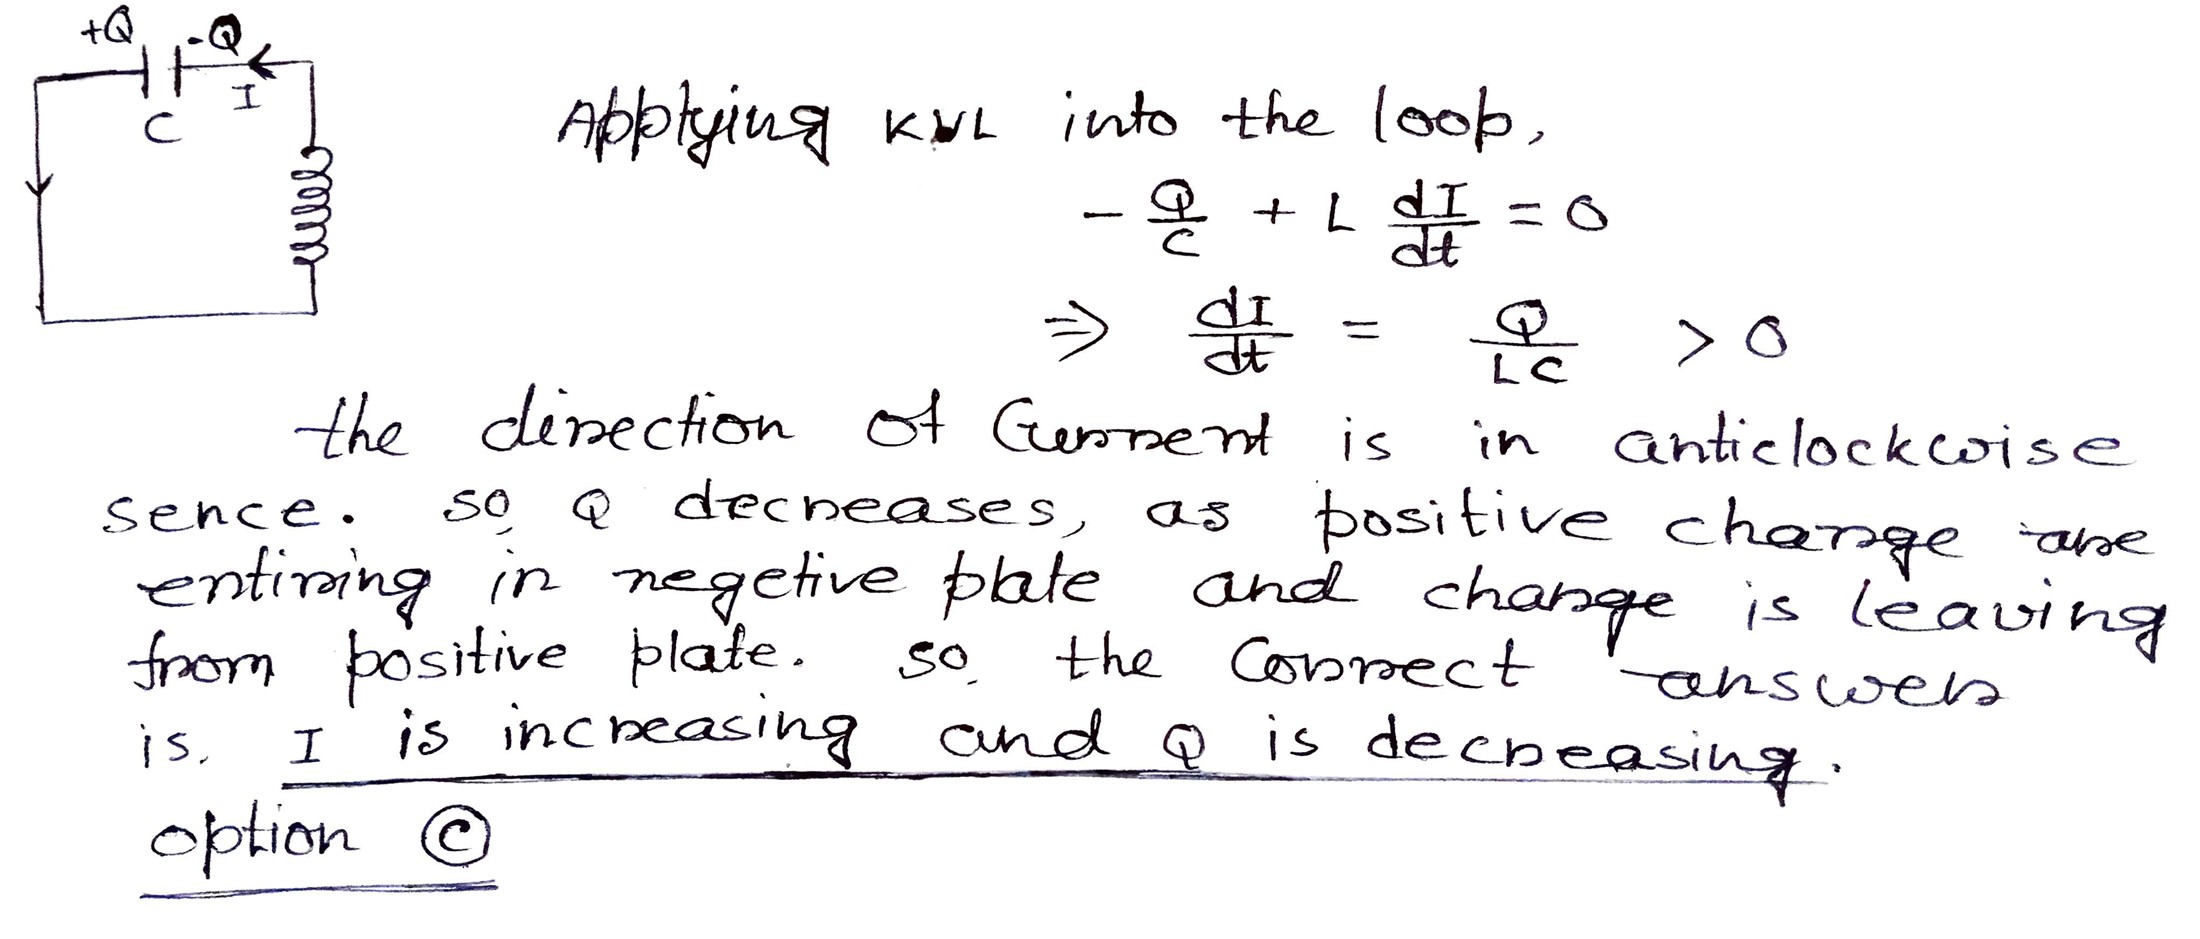 +Q -Q
I
C
Applying KVL into the loop,
- Q/C + L dI/dt = 0
⇒ dI/dt = Q/LC > 0
the direction of Current is in anticlockwise
sence. so, Q decreases, as positive charge are
entiring in negetive plate and charge is leaving
from positive plate. so, the Correct answer
is. I is increasing and Q is decreasing.
option Ⓒ